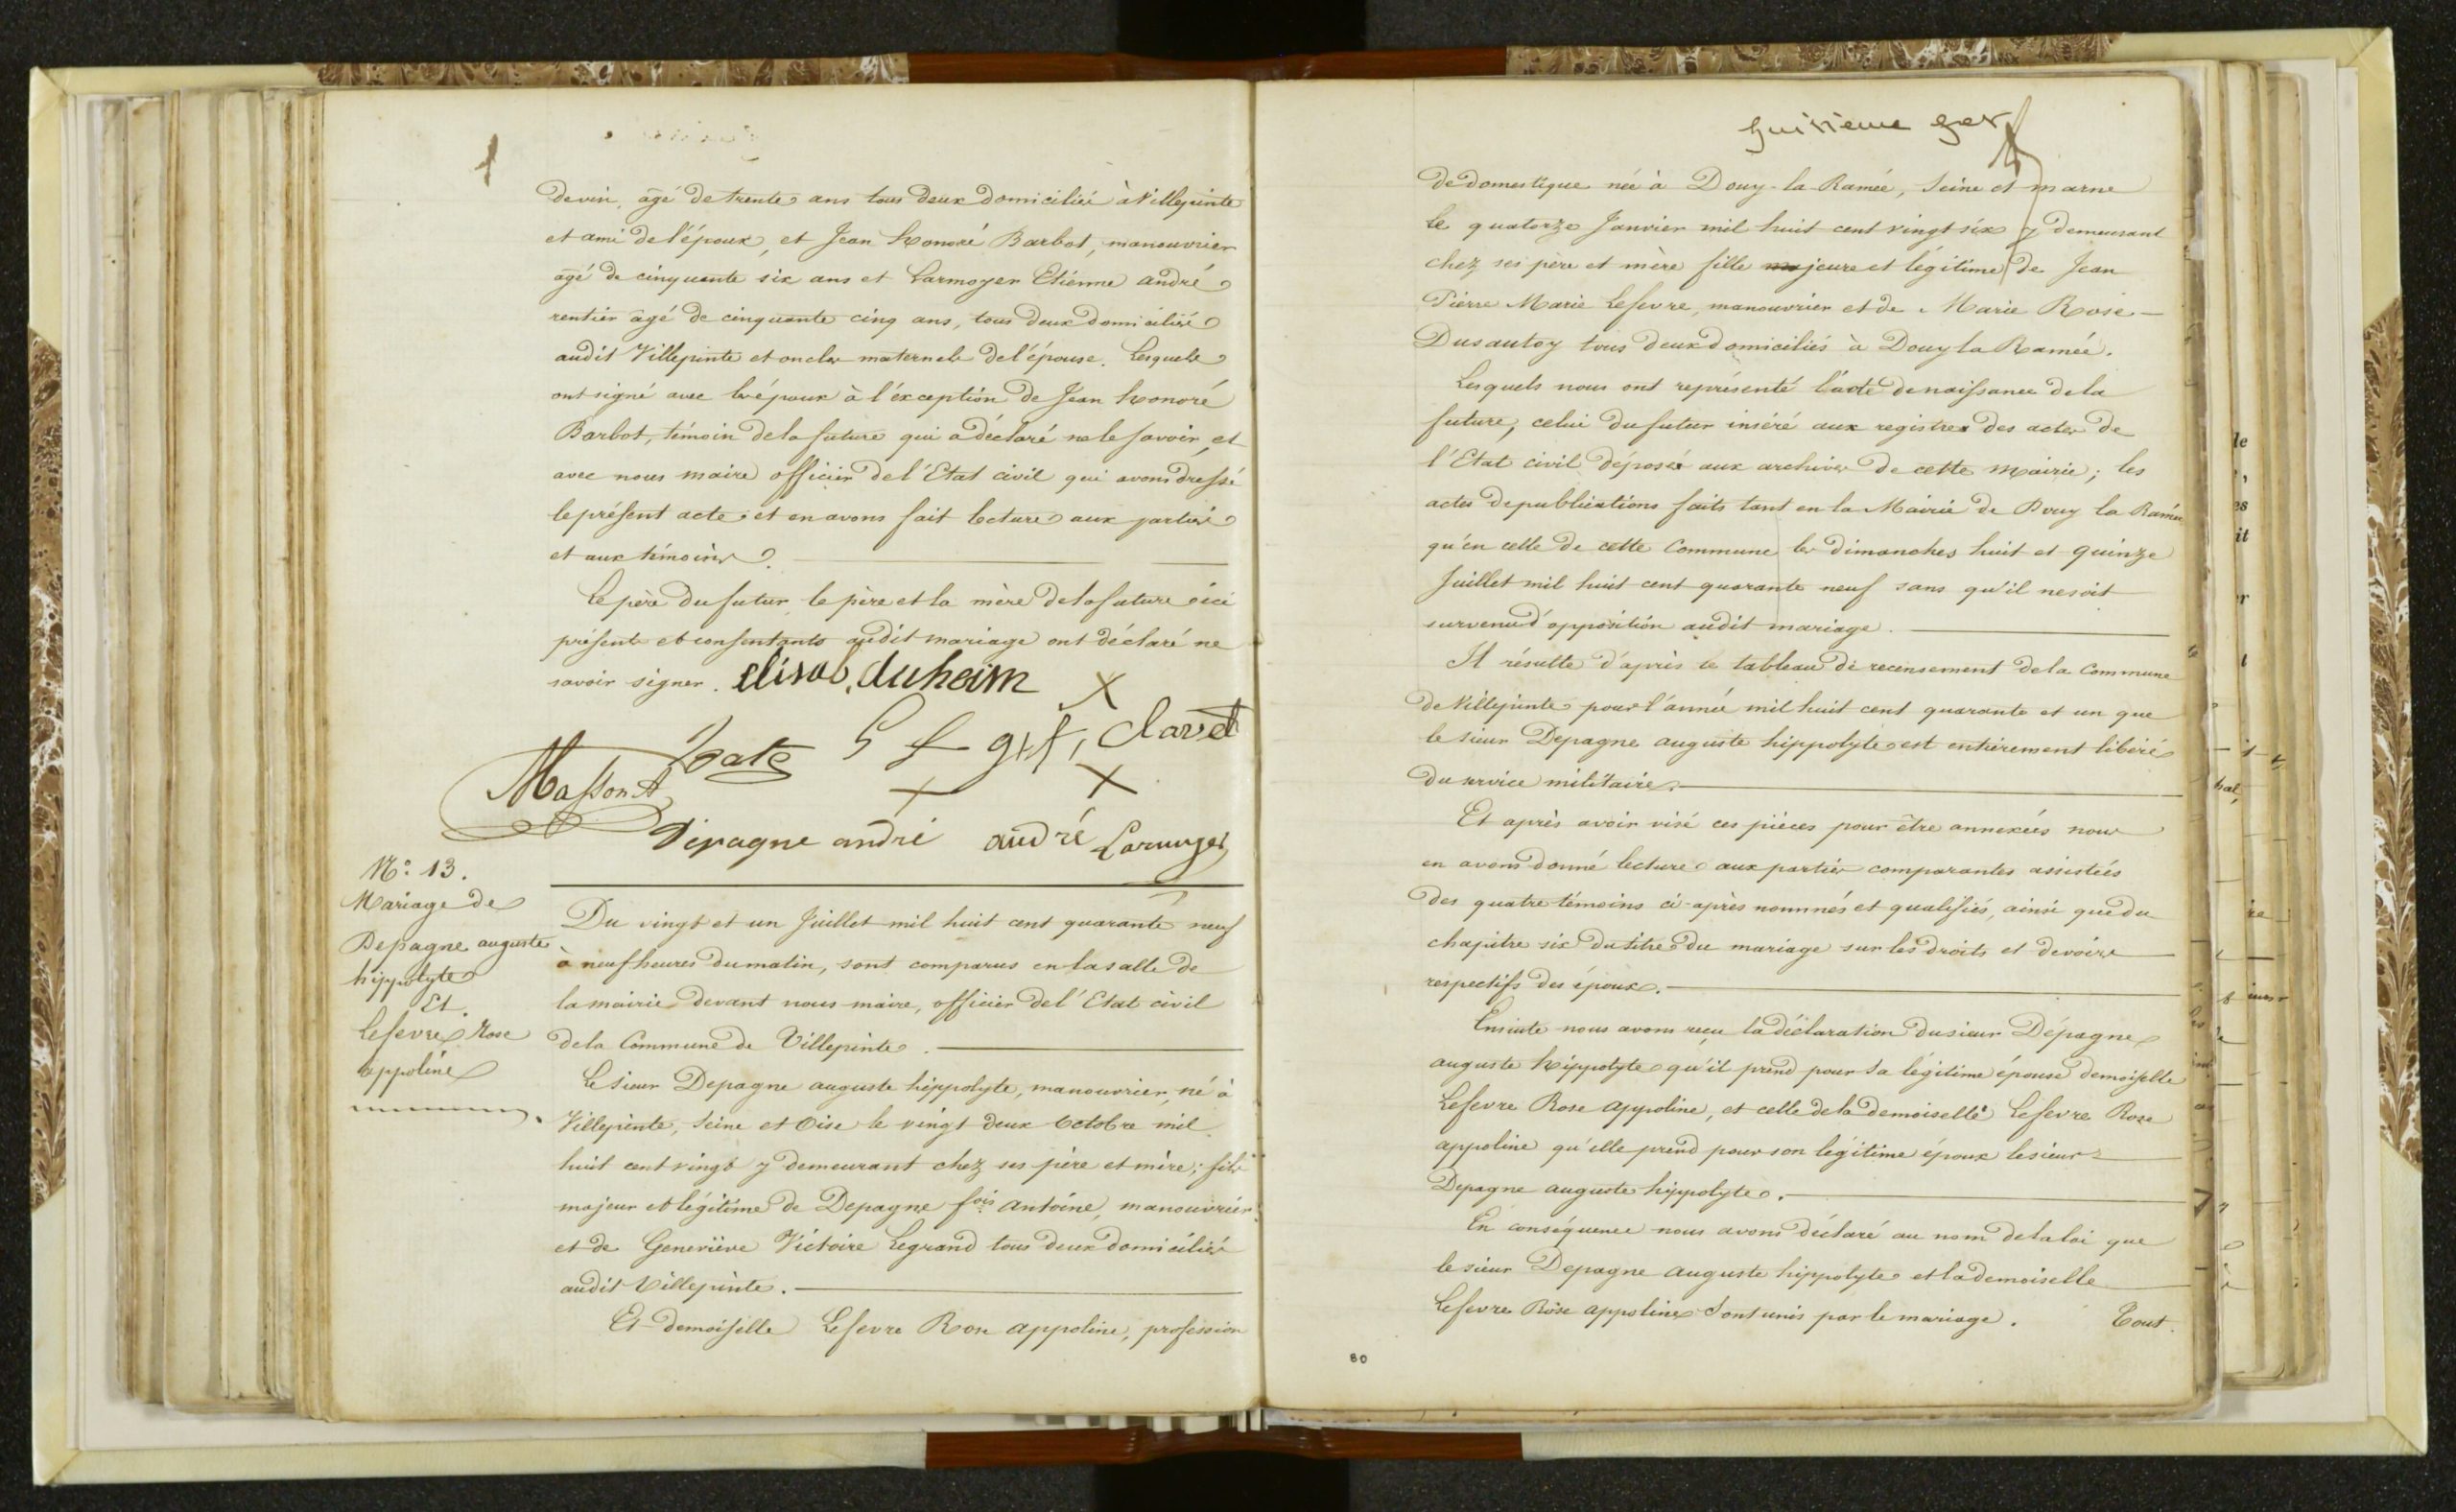 de vin, âgé de trente ans tous deux domiciliés à Villepinte
et ami de l'époux, et Jean honoré Barbot, manouvrier
agé de cinquante six ans et Larmoyer Etienne andré
rentier âgé de cinquante cinq ans, tous deux domiciliés
audit Villepinte et oncles maternels de l'épouse. Lesquels
ont signé avec les époux à l'exception de Jean honoré
Barbot, témoin de la future qui a déclaré ne le savoir, et
avec nous maire officier de l'Etat civil qui avons dressé
le présent acte et en avons fait lecture aux parties
et aux témoins.
Le père du futur, le père et la mère de la future ici
présents et consentants audit mariage ont déclaré ne
savoir signer. elisa duheim
Clavet
Masson
Depagne andré andré
N° 13.
Mariage de
Depagne auguste
hippolyte
Et
Lefevre Rose
appoline
Du vingt et un Juillet mil huit cent quarante neuf
à neuf heures du matin, sont comparus en la salle de
la mairie devant nous maire, officier de l'Etat civil
de la Commune de Villepinte.
Le sieur Depagne auguste hippolyte, manouvrier, né à
Villepinte, Seine et Oise le vingt deux Octobre mil
huit cent vingt y demeurant chez ses père et mère; fils
majeur et légitime de Depagne fois Antoine, manouvrier
et de Geneviève Victoire Legrand tous deux domiciliés
audit Villepinte.
Et demoiselle Lefevre Rose appoline, profession
huitième
de domestique née à Douy-la-Ramée, Seine et marne
le quatorze Janvier mil huit cent vingt six y demeurant
chez ses père et mère fille majeure et légitime de Jean
Pierre Marie Lefevre, manouvrier et de Marie Rose
Dusautoy tous deux domiciliés à Douy la Ramée.
Lesquels nous ont représenté l'acte de naissance de la
future, celui du futur inséré aux registres des actes de
l'Etat civil déposés aux archives de cette mairie; les
actes de publications faits tant en la Mairie de Douy la Ramée
qu'en celle de cette Commune les dimanches huit et quinze
Juillet mil huit cent quarante neuf sans qu'il ne soit
survenu d'opposition audit mariage.
Il résulte d'après le tableau de recensement de la Commune
de Villepinte pour l'année mil huit cent quarante et un que
le sieur Depagne auguste hippolyte est entièrement libéré
du service militaire.
Et après avoir visé ces pièces pour être annexées nous
en avons donné lecture aux parties comparantes assistées
des quatre témoins ci-après nommés et qualifiés, ainsi que du
chapitre six du titre du mariage sur les droits et devoirs
respectifs des époux.
Ensuite nous avons reçu la déclaration du sieur Dépagne
auguste hippolyte qu'il prend pour sa légitime épouse demoiselle
Lefevre Rose appoline, et celle de la demoiselle Lefevre Rose
appoline qu'elle prend pour son légitime époux le sieur
Depagne auguste hippolyte.
En conséquence nous avons déclaré au nom de la loi que
le sieur Depagne auguste hippolyte et la demoiselle
Lefevre Rose appoline sont unis par le mariage. Tout
80